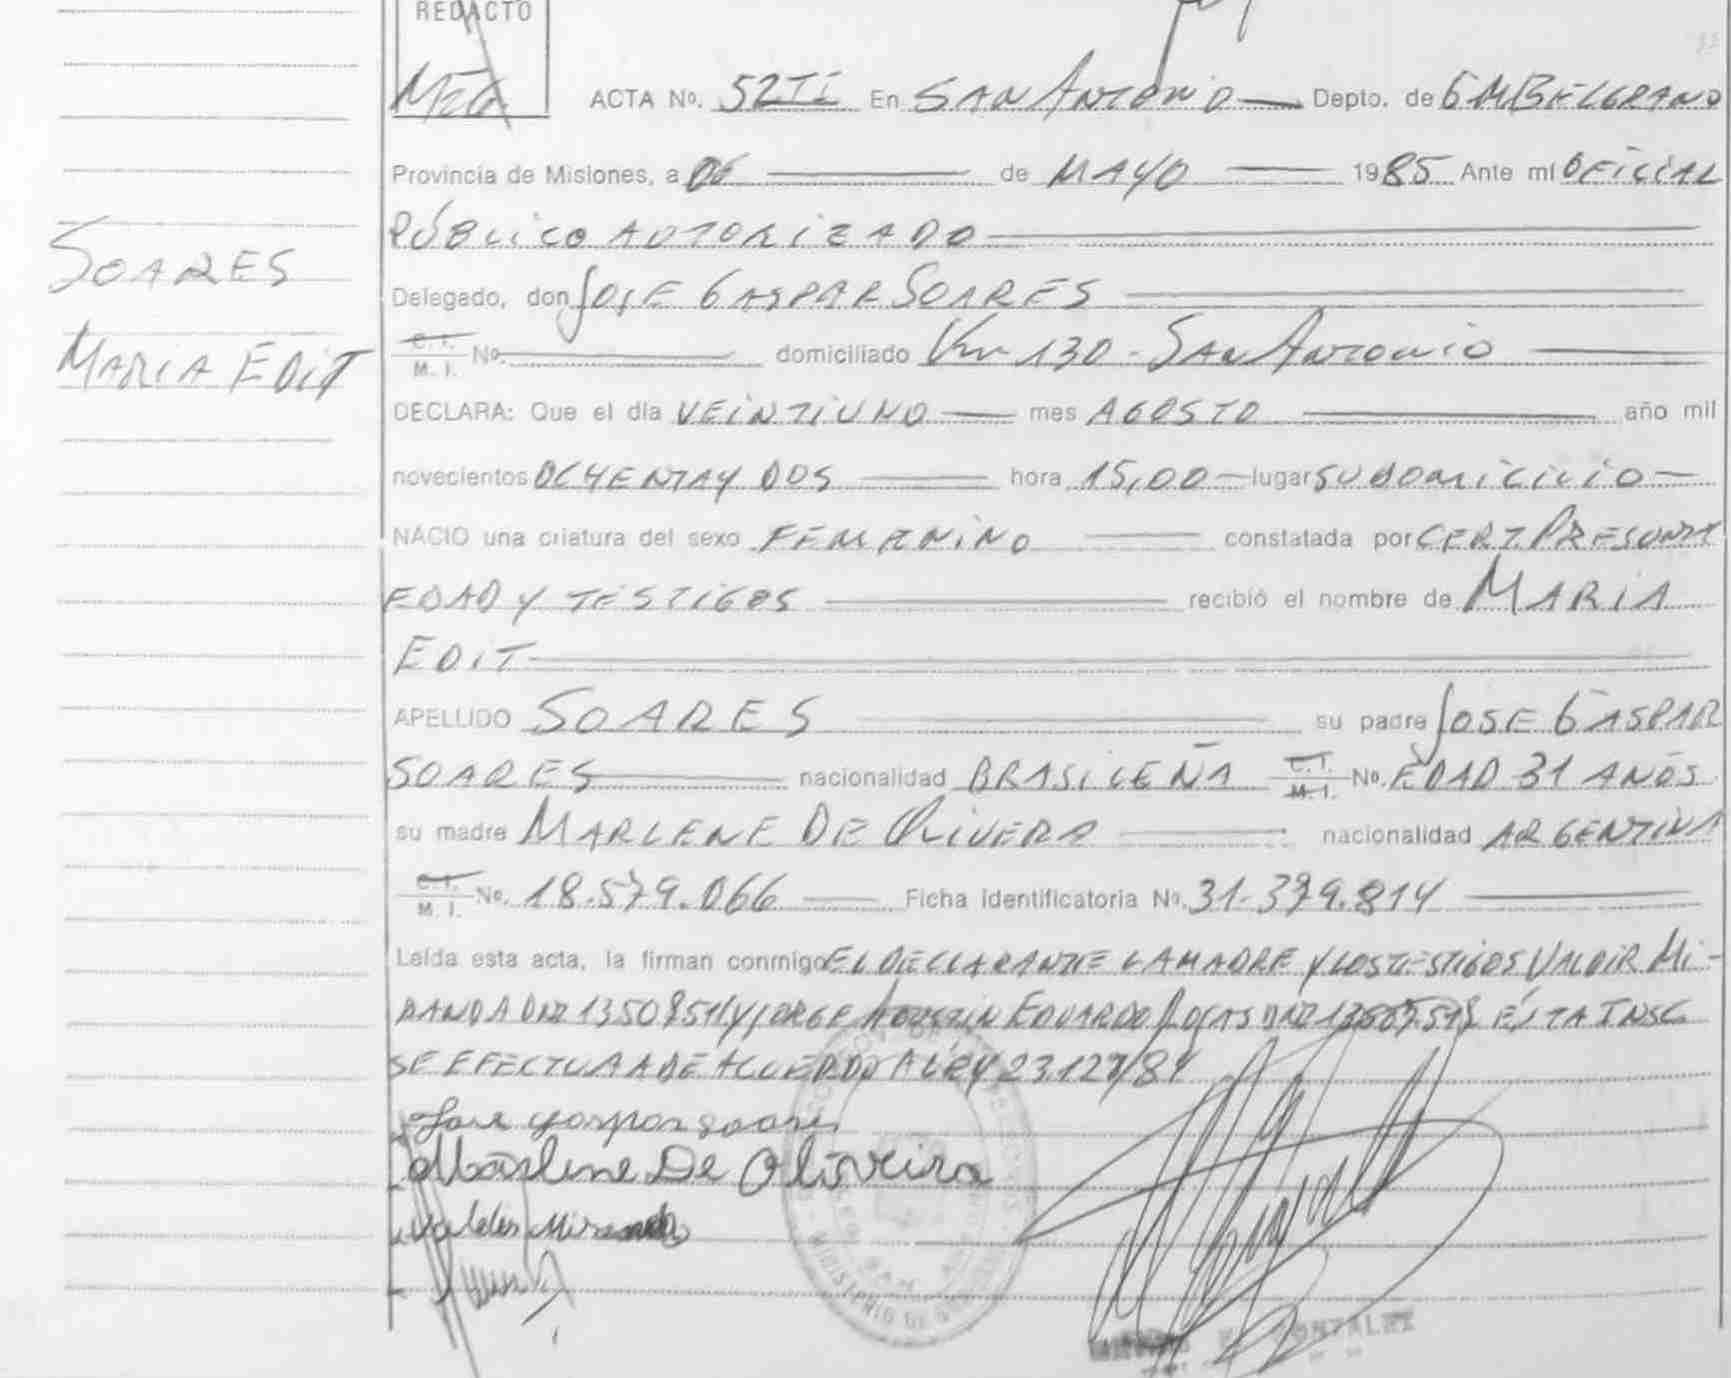 REDACTO
ACTA Nº. 52TI En SAN ANTONIO Depto. de G M BELGRANO
Provincia de Misiones, a 06 de MAYO 1985 Ante mí OFICIAL
PÚBLICO AUTORIZADO
SOARES
Delegado, don JOSE GASPAR SOARES
MARIA EDIT
C. I. M. I. Nº. domiciliado Km 130 - SAN ANTONIO
DECLARA: Que el día VEINTIUNO mes AGOSTO año mil
novecientos OCHENTA Y DOS hora 15,00 lugar SU DOMICILIO
NACIO una criatura del sexo FEMENINO constatada por CERT. PRESUNTA
EDAD Y TESTIGOS recibió el nombre de MARIA
EDIT
APELLIDO SOARES su padre JOSE GASPAR
SOARES nacionalidad BRASILEÑA C. I. M. I. Nº. EDAD 31 AÑOS
su madre MARLENE DE OLIVERA nacionalidad ARGENTINA
C. I. M. I. Nº. 18.579.066 Ficha identificatoria Nº. 31.379.814
Leída esta acta, la firman conmigo EL DECLARANTE LA MADRE Y LOS TESTIGOS VALDIR MI-
RANDA DNI Y JORGE AGUSTIN EDUARDO ROJAS DNI ESTA INSC
SE EFECTUA DE ACUERDO A LEY 23.128/84
Jose gaspar soares
Marlene De Oliveira
Valdir Miranda
MINISTERIO DE
GONZALEZ